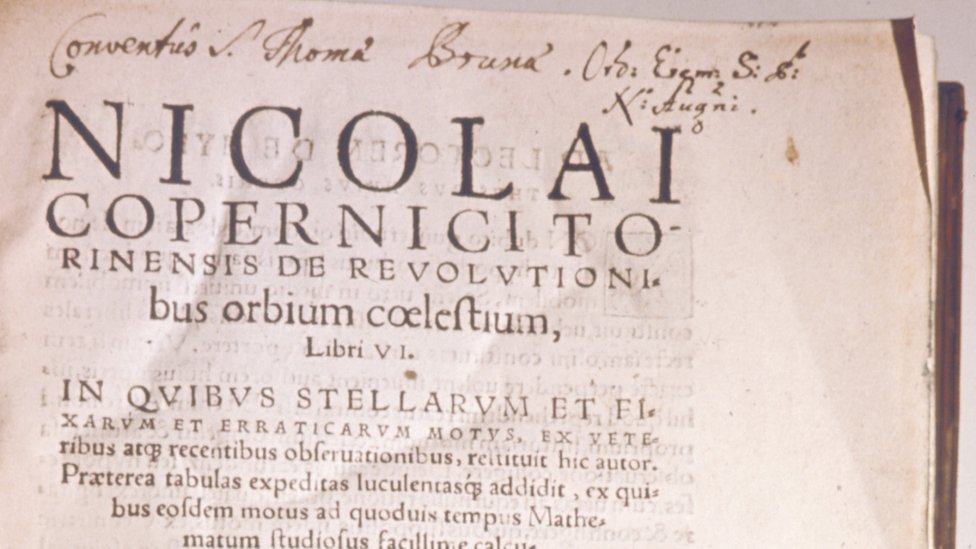 Conventûs S. Thomæ Brunæ. Ord: Erem: S: P:
N: Augni.
NICOLAI
COPERNICI TO-
RINENSIS DE REVOLVTIONI-
bus orbium cœlestium,
Libri VI.
IN QVIBVS STELLARVM ET FI-
XARVM ET ERRATICARVM MOTVS, EX VETE-
ribus atq; recentibus obseruationibus, restituit hic autor.
Præterea tabulas expeditas luculentasq; addidit, ex qui-
bus eosdem motus ad quoduis tempus Mathe-
matum studiosus facillime calcu-